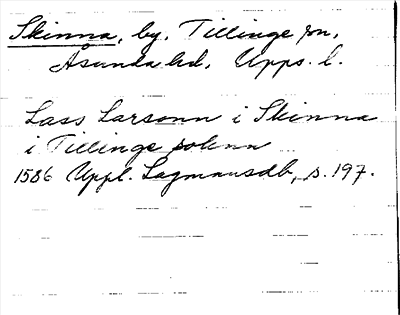 Skinna, by. Tillinge sn,
Åsunda hd, Upps. l.
Lass Larsonn i Skinna
i Tillinge soknn
1586 Uppl. Lagmansdb, s. 197.